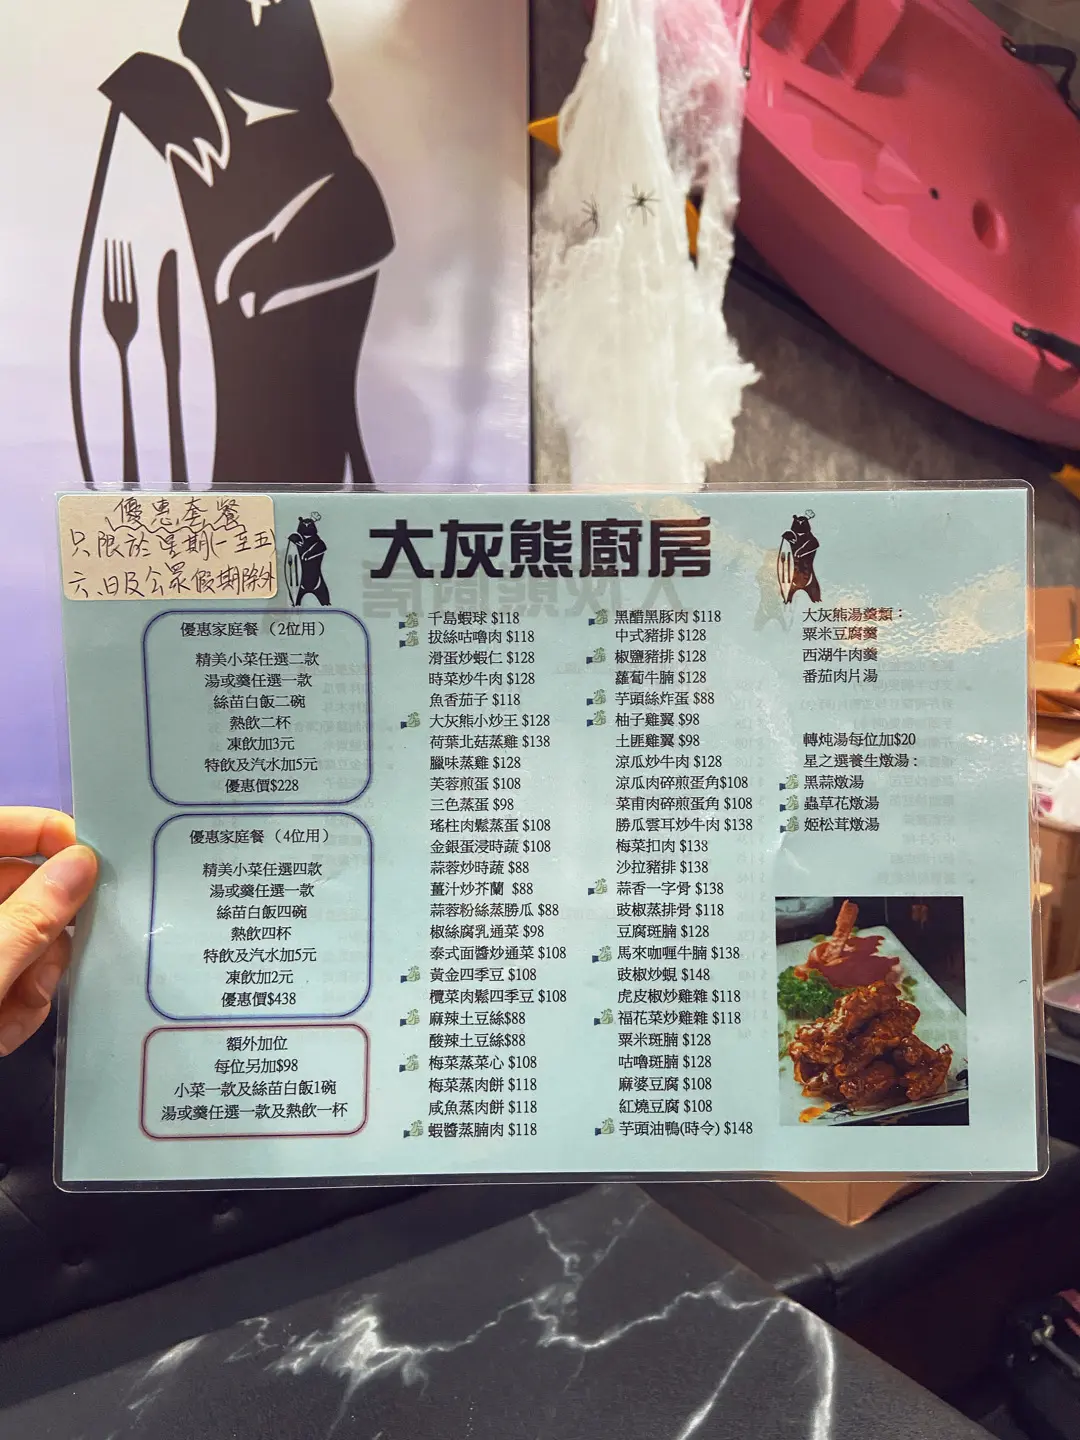 優惠套餐
只限於星期(一至五)
六、日及公眾假期除外
大灰熊廚房
優惠家庭餐（2位用）
精美小菜任選二款
湯或羹任選一款
絲苗白飯二碗
熱飲二杯
凍飲加3元
特飲及汽水加5元
優惠價$228
優惠家庭餐（4位用）
精美小菜任選四款
湯或羹任選一款
絲苗白飯四碗
熱飲四杯
特飲及汽水加5元
凍飲加2元
優惠價$438
額外加位
每位另加$98
小菜一款及絲苗白飯1碗
湯或羹任選一款及熱飲一杯
千島蝦球 $118
拔絲咕嚕肉 $118
滑蛋炒蝦仁 $128
時菜炒牛肉 $128
魚香茄子 $118
大灰熊小炒王 $128
荷葉北菇蒸雞 $138
臘味蒸雞 $128
芙蓉煎蛋 $108
三色蒸蛋 $98
瑤柱肉鬆蒸蛋 $108
金銀蛋浸時蔬 $108
蒜蓉炒時蔬 $88
薑汁炒芥蘭 $88
蒜蓉粉絲蒸勝瓜 $88
椒絲腐乳通菜 $98
泰式面醬炒通菜 $108
黃金四季豆 $108
欖菜肉鬆四季豆 $108
麻辣土豆絲$88
酸辣土豆絲$88
梅菜蒸菜心 $108
梅菜蒸肉餅 $118
咸魚蒸肉餅 $118
蝦醬蒸腩肉 $118
黑醋黑豚肉 $118
中式豬排 $128
椒鹽豬排 $128
蘿蔔牛腩 $128
芋頭絲炸蛋 $88
柚子雞翼 $98
土匪雞翼 $98
涼瓜炒牛肉 $128
涼瓜肉碎煎蛋角$108
菜甫肉碎煎蛋角 $108
勝瓜雲耳炒牛肉 $138
梅菜扣肉 $138
沙拉豬排 $138
蒜香一字骨 $138
豉椒蒸排骨 $118
豆腐斑腩 $128
馬來咖喱牛腩 $138
豉椒炒蜆 $148
虎皮椒炒雞雜 $118
福花菜炒雞雜 $118
粟米斑腩 $128
咕嚕斑腩 $128
麻婆豆腐 $108
紅燒豆腐 $108
芋頭油鴨(時令) $148
大灰熊湯羹類：
粟米豆腐羹
西湖牛肉羹
番茄肉片湯
轉炖湯每位加$20
星之選養生燉湯：
黑蒜燉湯
蟲草花燉湯
姬松茸燉湯